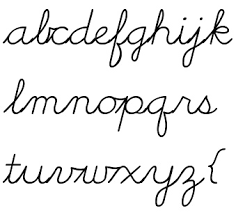 abcdefghijk
lmnopqrs
tuvwxyz{